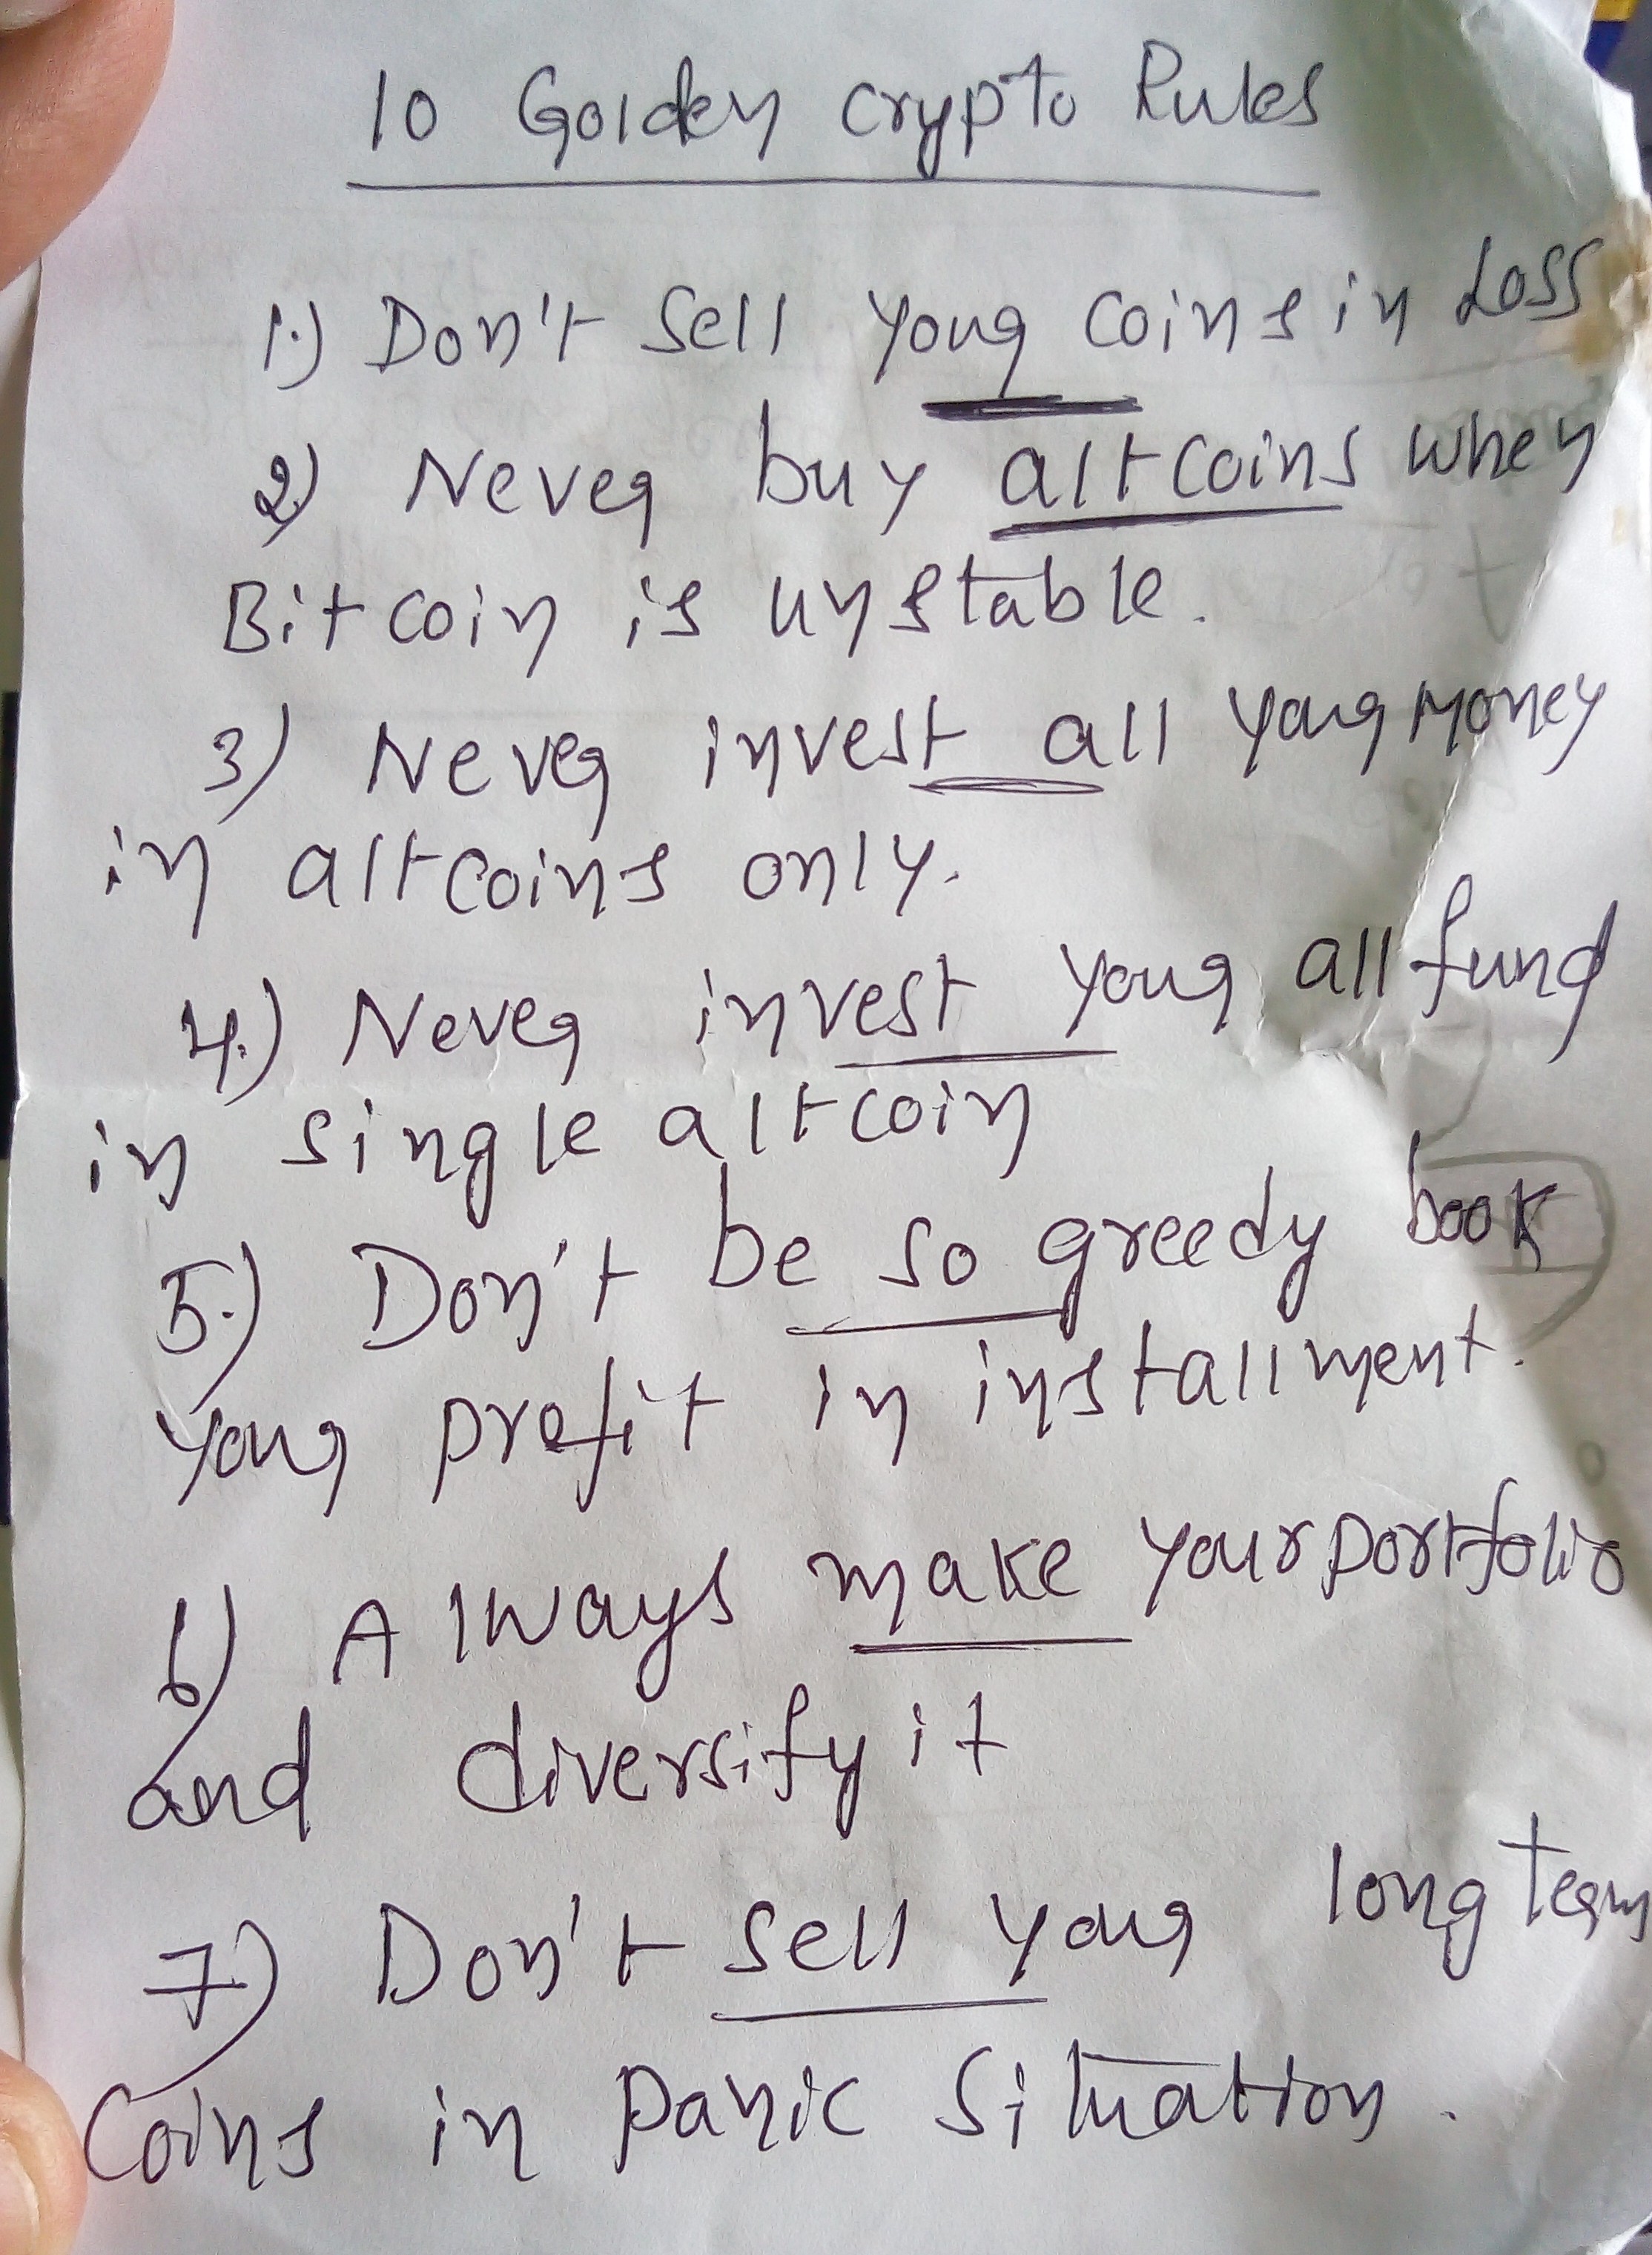 10 Golden crypto Rules
1.) Don't sell your coins in Loss
2.) Never buy altcoins when
Bitcoin is unstable.
3) Never invest all your money
in altcoins only.
4.) Never invest your all fund
in single altcoin
5.) Don't be so greedy book
your profit in installment.
6) Always make your portfolio
and diversify it
7.) Don't sell your long term
Coins in panic situation.